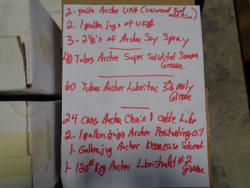 2- pails Archer UFA (Universal Fuel Additive)
2- 1 gallon jugs of UFA
3- 2½'s of Archer Soy Spray
40 Tubes Archer Super Solidified Grease
60 Tubes Archer Lubritac 3% moly Grease
24 cans Archer Chain & Cable Lube
2- 1 gallon jugs Archer Penetrating oil
1- Gallon jug Archer Solvent
1- 120# Keg Archer #2 Grease